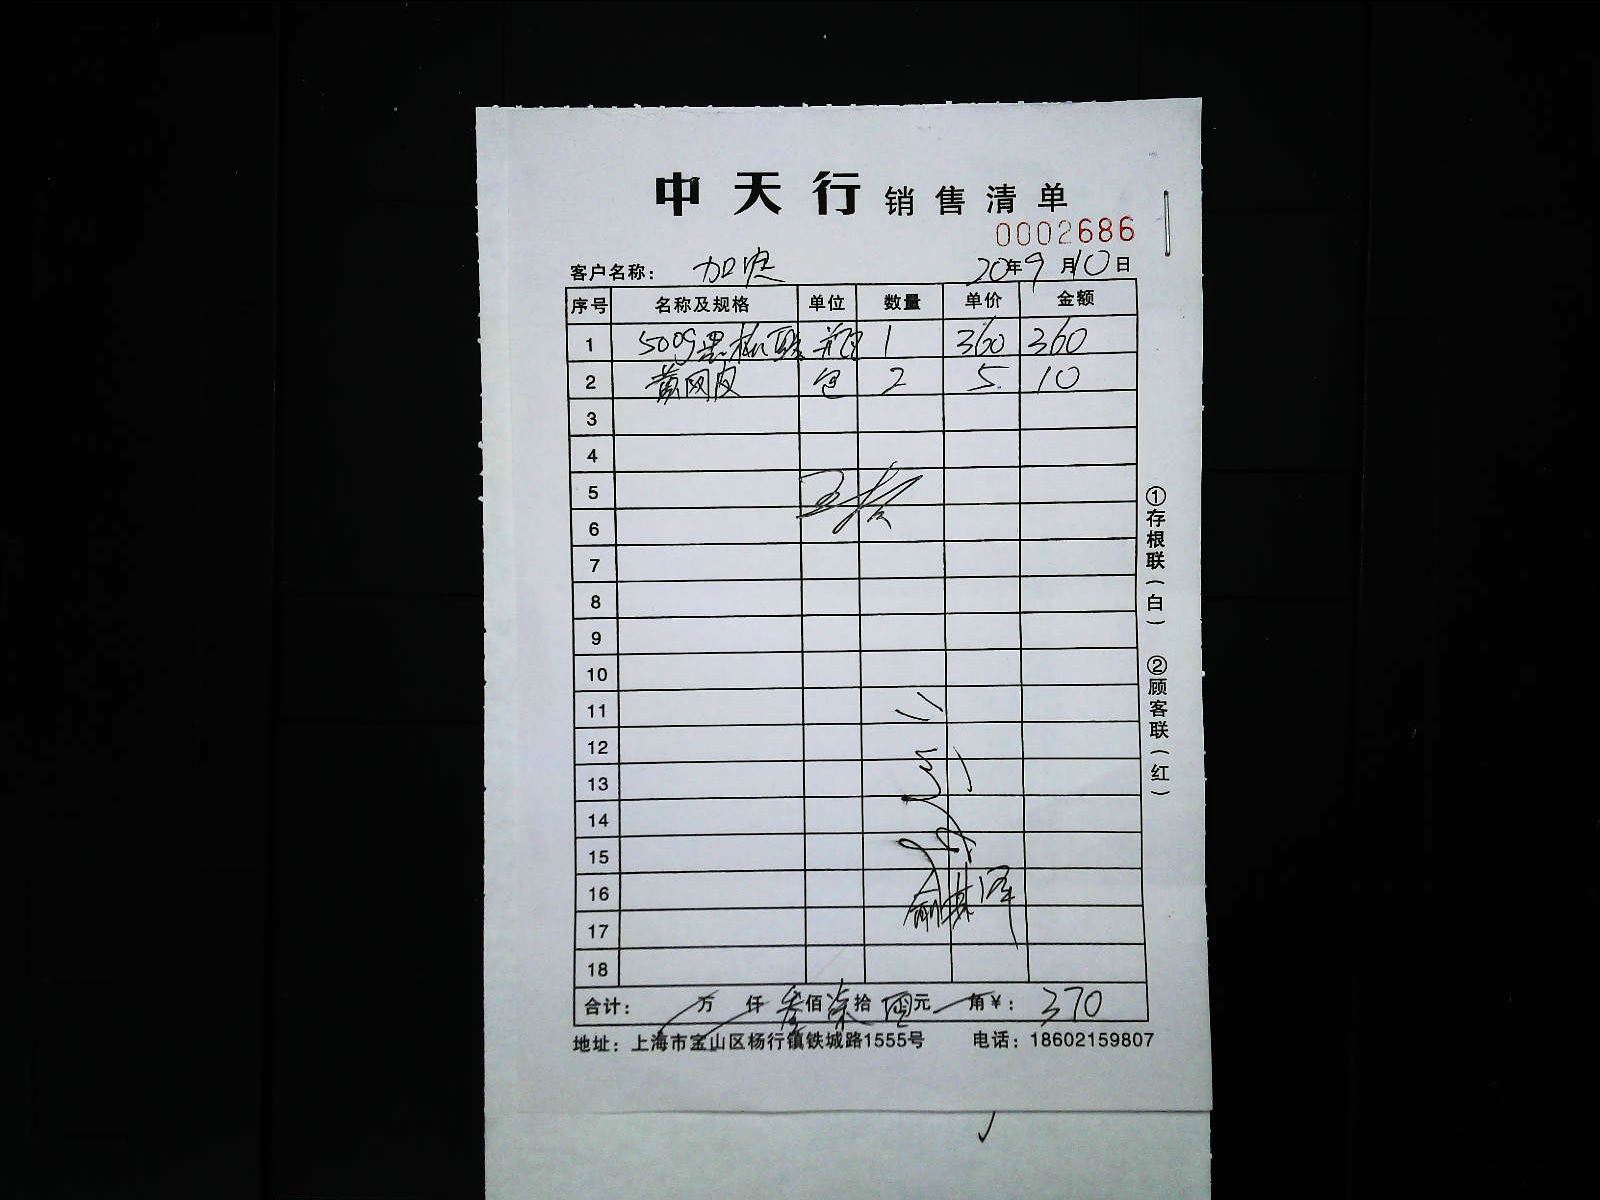 中天行 销售清单
0002686
客户名称： 20年9月10日
序号 名称及规格 单位 数量 单价 金额
1 500g黑 瓶 1 360 360
2 黄网皮 包 2 5 10
3
4
5
6
7
8
9
10
11
12
13
14
15
16
17
18
合计： 万 仟 叁佰柒拾 元 角￥： 370
地址：上海市宝山区杨行镇铁城路1555号 电话：18602159807
①存根联（白） ②顾客联（红）